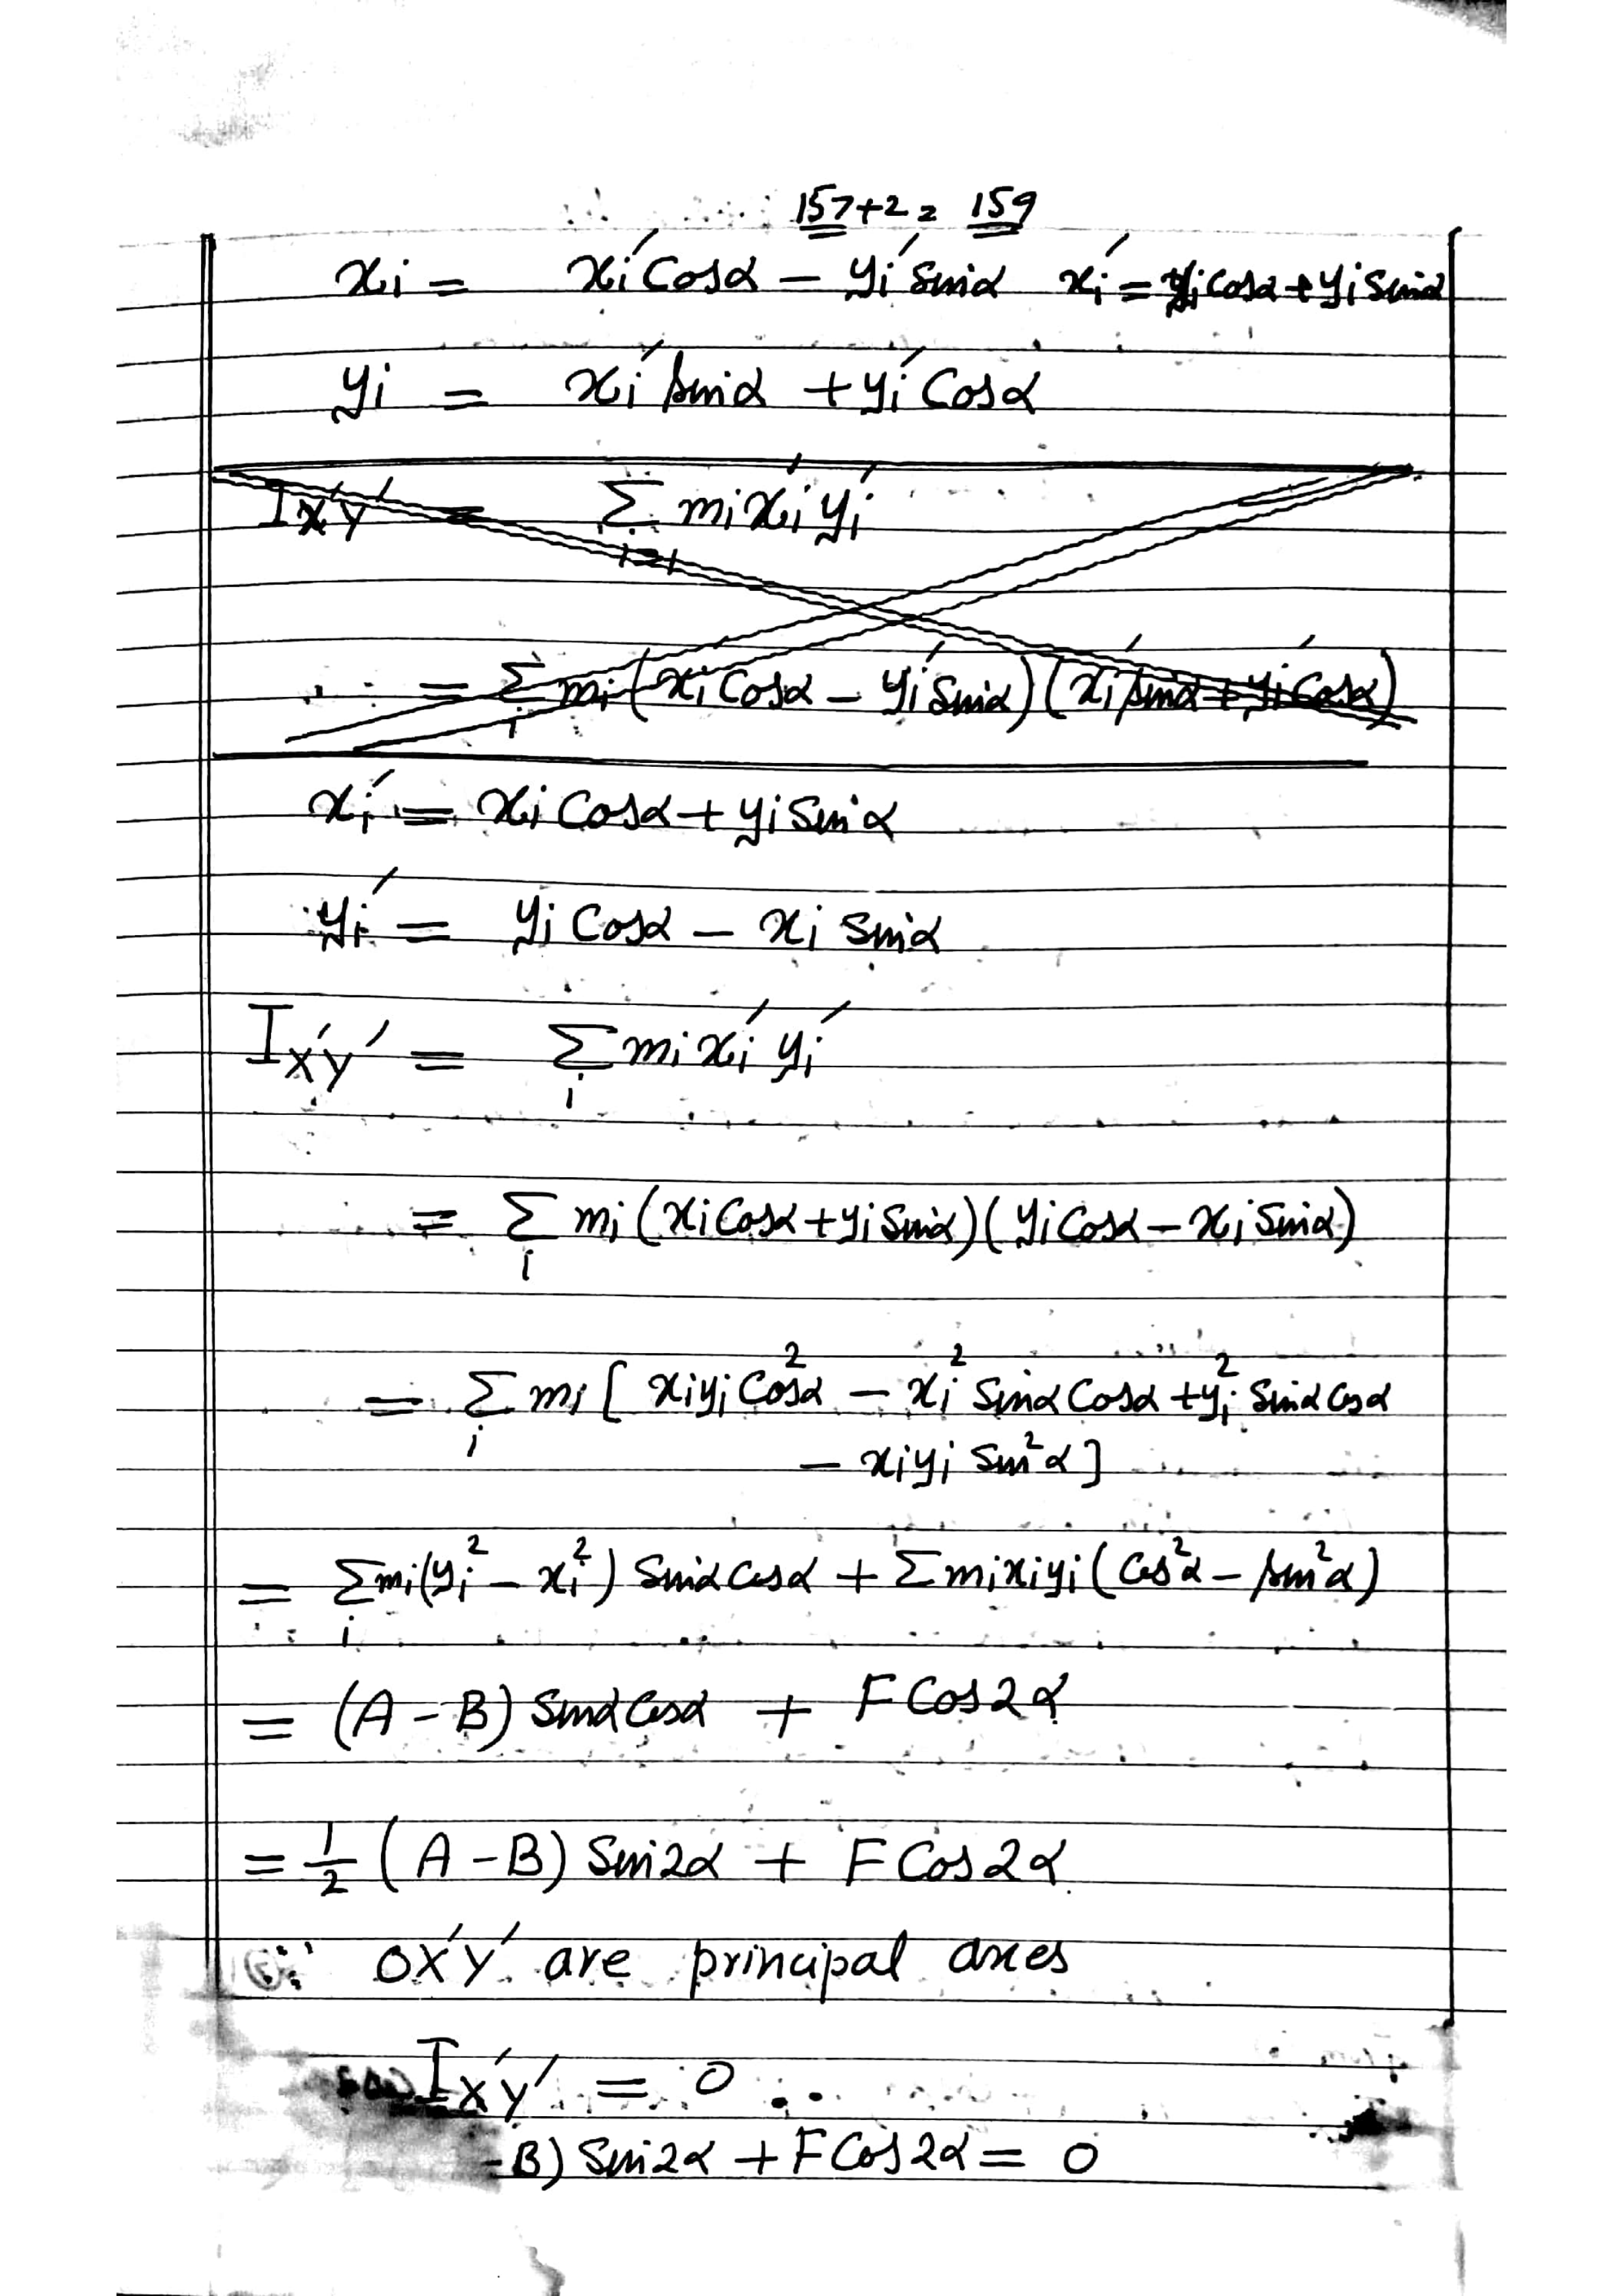 157+2 = 159
xi = xi′ Cosα – yi′ Sinα xi′ = xi Cosα + yi Sinα
yi = xi′ sinα + yi′ Cosα
Ix′y′ = Σ mi xi′ yi′
i=1
= Σ mi (xi′ Cosα – yi′ Sinα) (xi′ sinα + yi′ Cosα)
i
xi′ = xi Cosα + yi Sinα
yi′ = yi Cosα – xi Sinα
Ix′y′ = Σ mi xi′ yi′
i
= Σ mi (xi Cosα + yi Sinα) (yi Cosα – xi Sinα)
i
= Σ mi [ xiyi Cos²α – xi² Sinα Cosα + yi² Sinα Cosα
i
– xiyi Sin²α ]
= Σ mi (yi² – xi²) Sinα Cosα + Σ mi xi yi (Cos²α – sin²α)
i
= (A – B) Sinα Cosα + F Cos2α
= 1/2 (A – B) Sin2α + F Cos2α
∵ OX′Y′ are principal axes
Ix′y′ = 0
- B) Sin2α + F Cos2α = 0